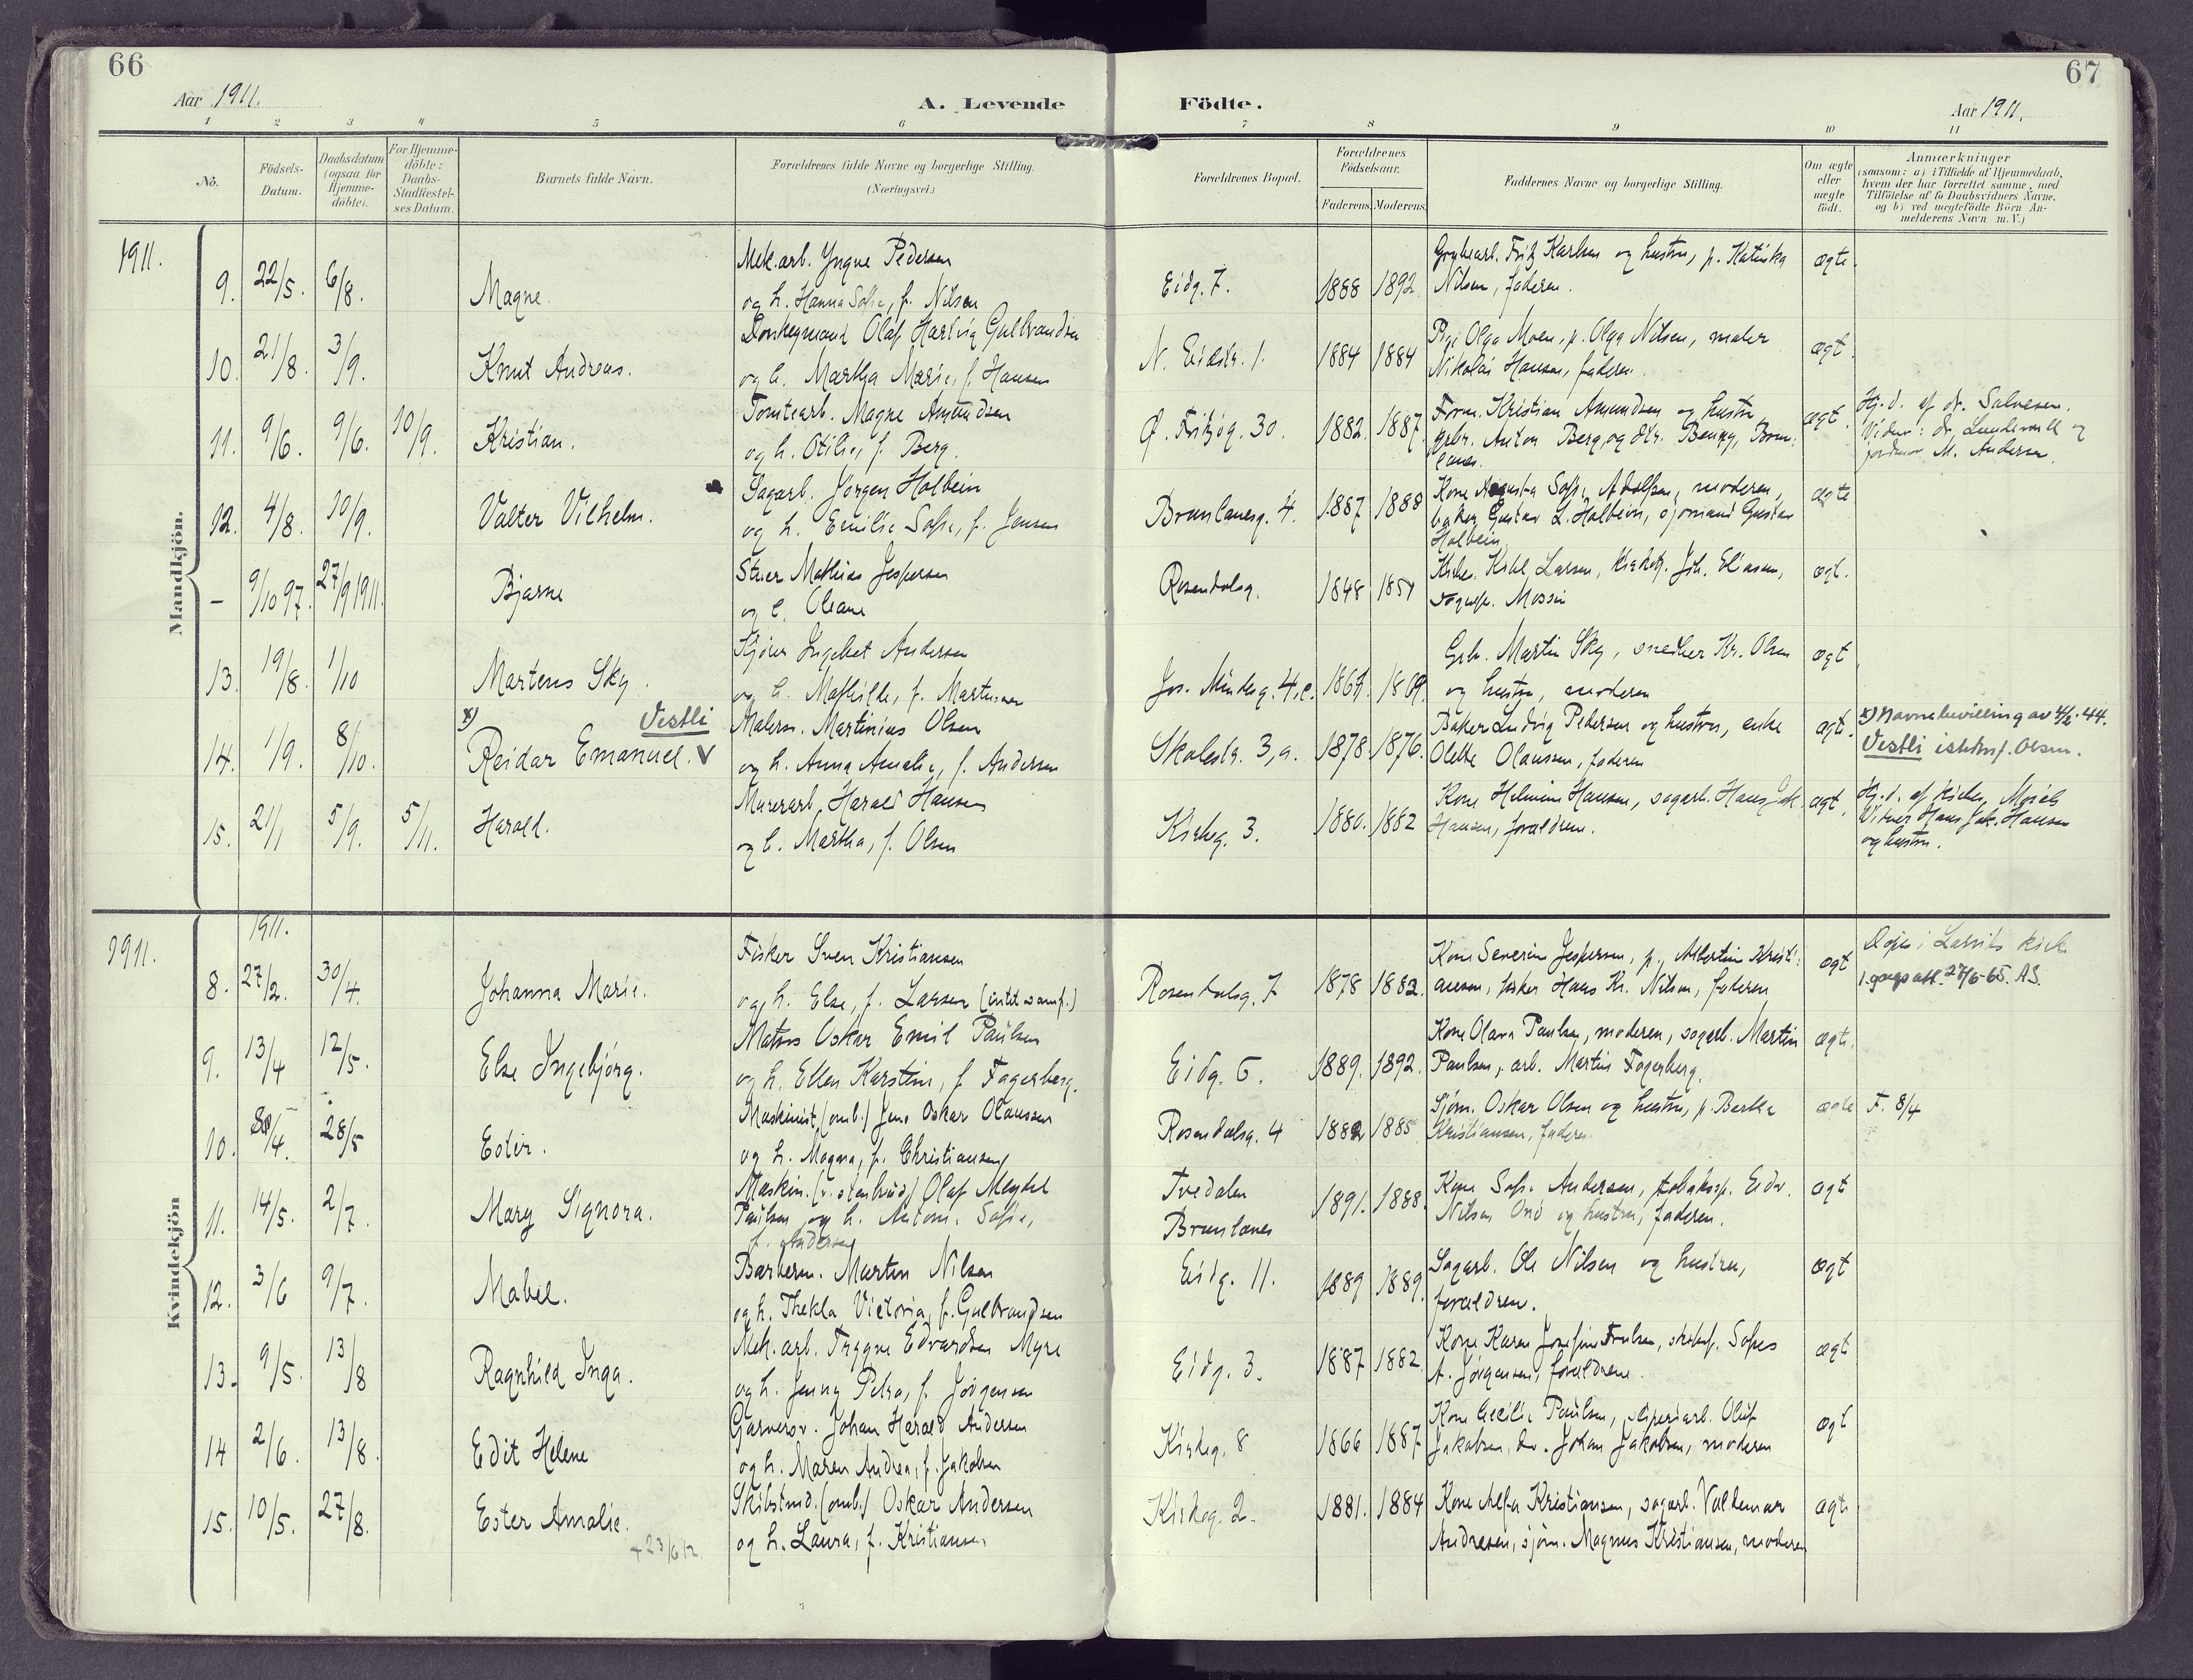 66
67
Aar 1911.
A. Levende
Födte.
Aar 1911.
1 2 3 4 5 6 7 8 9 10 11
No.
Födsels-
Datum.
Daabsdatum
(ogsaa for
Hjemme-
döbte).
For Hjemme-
döbte:
Daabs-
Stadfæstel-
ses Datum.
Barnets fulde Navn.
Forældrenes fulde Navne og borgerlige Stilling.
(Næringsvei.)
Forældrenes Bopæl.
Forældrenes
Födselsaar.
Faderens. Moderens.
Faddernes Navne og borgerlige Stilling.
Om ægte
eller
uægte
födt.
Anmærkninger
(saasom: a) i Tilfælde af Hjemmedaab,
hvem der har forrettet samme, med
Tilföielse af to Daabsvidners Navne,
og b) ved uægtefödte Börn An-
melderens Navn m. V.)
Mandkjön.
1911.
9. 22/5. 6/8. Magne.
Mek.arb. Yngve Pedersen
og h. Hanna Sofie, f. Nilsen
Eidg. 7. 1888 1892
Karlsen og hustru, p. Katinka
Nilsen, faderen.
ægte.
10. 21/8. 3/9. Knut Andreas.
Olaf Hartvig Gulbrandsen
og h. Martha Marie, f. Hansen
N. Eidstr. 1. 1884 1884
Pige Olga Moen, p. Olga Nilsen, maler
Nikolai Hansen, faderen.
ægt.
11. 9/6. 9/6. 10/9. Kristian.
Tomtearb. Magne Amundsen
og h. Otilie, f. Berg.
Ø. Fritzög. 30. 1882. 1887.
Form. Kristian Amundsen og hustru
grbr. Anton Berg, og dtr. Benny, Brun-
lanes.
ægt.
Hj.d. af dr. Salvesen.
Vidner: dr. Lundevall og
jordmor M. Andersen.
12. 4/8. 10/9. Valter Vilhelm.
Sagarb. Jørgen Holbein
og h. Emilie Sofie, f. Jensen
Brunlanesg. 4. 1887 1888
Kone Augusta Sofie Adolfsen, moderen,
baker Gustav L. Holbein, sjømand Gustav
Holbein
ægte
– 9/10 97. 27/9 1911. Bjarne
Mathias Jespersen
og h. Oleane
Rosendalsg. 1848 1854
Larsen, Joh. Eliasen,
sognepr. Mossin
ægt.
13. 19/8. 1/10 Martens Sky.
Kjører Ingebret Andersen
og h. Mathilde, f. Martinsen
Jos. Mindesg. 4,c. 1867. 1869.
Grb. Martin Sky, snedker Kr. Olsen
og hustru, moderen
ægt
x) Vestli
14. 1/9. 8/10. Reidar Emanuel. V
Malerm. Martinius Olsen
og h. Anna Amalie, f. Andersen
Skolestr. 3,a. 1878. 1876.
Baker Ludvig Pedersen og hustru, enke
Olette Olaussen, faderen
ægt.
x) Navnebevilling av 4/2-44.
Vestli istedenf. Olsen.
15. 21/1 5/9. 5/11. Harald.
Murerarb. Harald Hansen
og h. Martha, f. Olsen
Kirkeg. 3. 1880. 1882
Kone Helmine Hansen, sagarb. Hans Jak.
Hansen, forældrene.
ægt.
Hj.d. af
Vidner Hans Jak. Hansen
og hustru.
Kvindekjön
1911.
1911.
8. 27/2. 30/4. Johanna Marie.
Fisker Sven Kristiansen
og h. Else, f. Larsen
Rosendalsg. 7 1878 1882.
Kone Severine Jespersen, p. Albertine Kristi-
ansen, fisker Hans Kr. Nilsen, faderen
ægt
9. 13/4 12/5. Else Ingebjörg.
Matros Oskar Emil Paulsen
og h. Ellen Karstine, f. Fagerberg.
Eidg. 5. 1889. 1892.
Kone Olava Paulsen, moderen, sagarb. Martin
Paulsen, arb. Martin Fagerberg.
ægte.
10. 28/5 Edvir.
Maskinist (omb.) Jens Oskar Olaussen
og h. Magna, f. Christiansen
Rosendalsg. 4 1882 1885
Sjøm. Oskar Olsen og hustru, p. Berta
Kristiansen, faderen.
ægte F. 8/4
11. 14/5. 2/7. Mary Signora.
Maskin. (v. stenbrud) Olaf Meydel
Paulsen og h. Antonie Sofie,
f. Andersen
Tvedalen
Brunlanes
1891. 1888.
Kone Sofie Andersen, Eidv.
Nilsen og hustru, faderen.
ægt
12. 3/6 9/7. Mabel.
Barberm. Martin Nilsen
og h. Thekla Victoria, f. Gulbrandsen
Eidg. 11. 1889 1889.
Sagarb. Ole Nilsen og hustru,
forældrene.
ægt
13. 9/5. 13/8 Ragnhild Inga.
Mek. arb. Trygve Edvardsen Myre
og h. Jenny Petra, f. Jørgensen
Eidg. 3. 1887 1882
Kone Karen Josefine
A. Jørgensen, forældrene.
ægt
14 2/6. 13/8. Edit Helene
Garversv. Johan Harald Andersen
og h. Maren Andrea, f. Jakobsen
Kirkeg. 8 1866 1887
Kone Cecilie Paulsen, sliperiarb. Oluf
Jakobsen, Johan Jakobsen, moderen
ægt
15. 10/5. 27/8. Ester Amalie.
+ 23/6 12.
Skibstmd. (omb.) Oskar Andersen
og h. Laura, f. Kristiansen
Kirkeg. 2. 1881. 1884
Kone Kristiansen, sagarb. Valdemar
Andresen, sjøm. Magnus Kristiansen, moderen
ægte